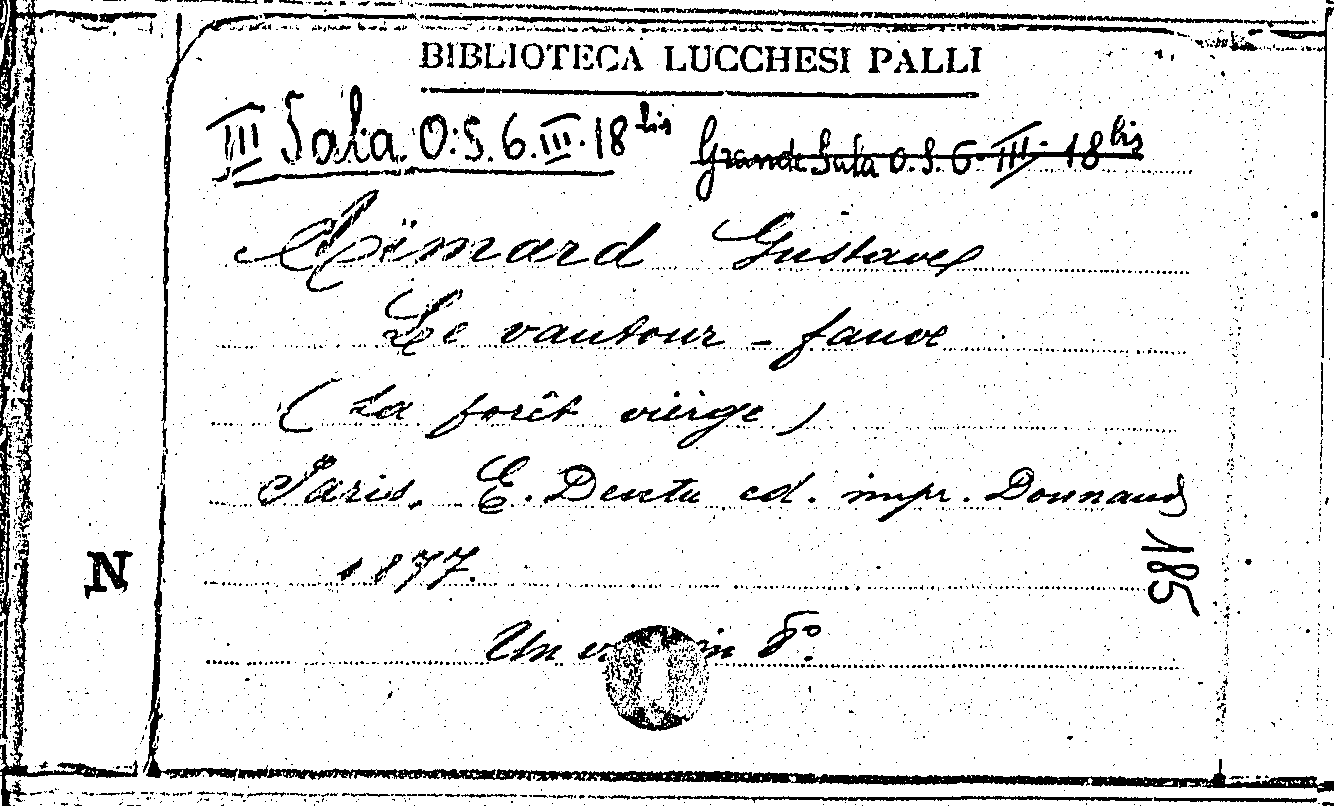 BIBLIOTECA LUCCHESI PALLI
III Sala. O.S. 6. III. 18 bis Grande Sala O.S. 6. III. 18 bis
Aimard Gustave
Le vautour - fauve
(La forêt vierge)
Paris. E. Dentu ed. impr. Donnaud
1877.
Un in 8°.
N
185